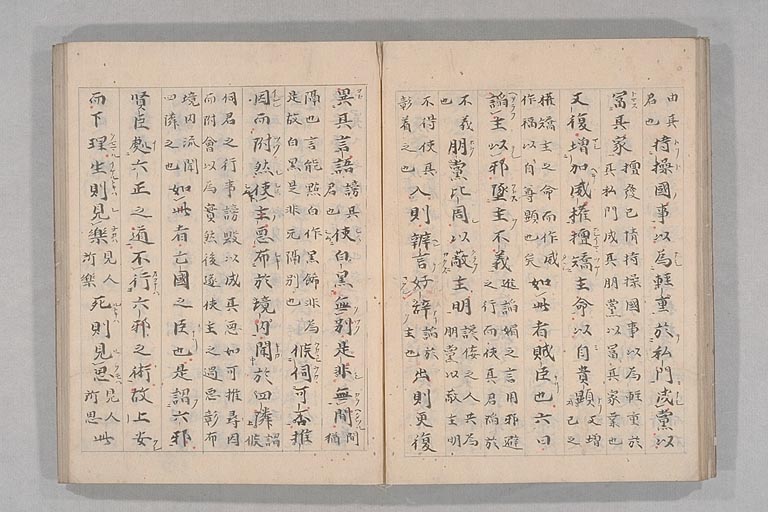 由其
君也
持操國事以為輕重於私門成黨以
富其家
擅發己情持操國事以為輕重於
其私門成其朋黨以富其家業也
又復增加威權擅矯主命以自貴顯
又增
己之
權矯主之命而作威
作福以自尊顯也矣
如此者賊臣也六曰
諂主以邪墜主不義
進諂媚之言用邪避
之行而使其君陷於
不義
也
朋黨比周以蔽主明
諛佞之人共為
朋黨以蔽主明
不得使其
彰着之也
入則辨言好辞
諂於
主也
出則更復
異其言語
謗其
君也
使白黑無別是非無間
間
猶
隔也言能點白作黑飾非為
是故白黑是非无隔別也
候伺可否推
因而附然使主惡布於境内聞於四隣
謂
候
伺君之行事謗毀以成其惡如可推尋因
而附會以為實然後遂使主之過惡彰布
境内流聞
四隣之也
如此者亡國之臣也是謂六邪
賢臣處六正之道不行六邪之術故上安
而下理生則見樂
見人
所樂
死則見思
見人
所思
此